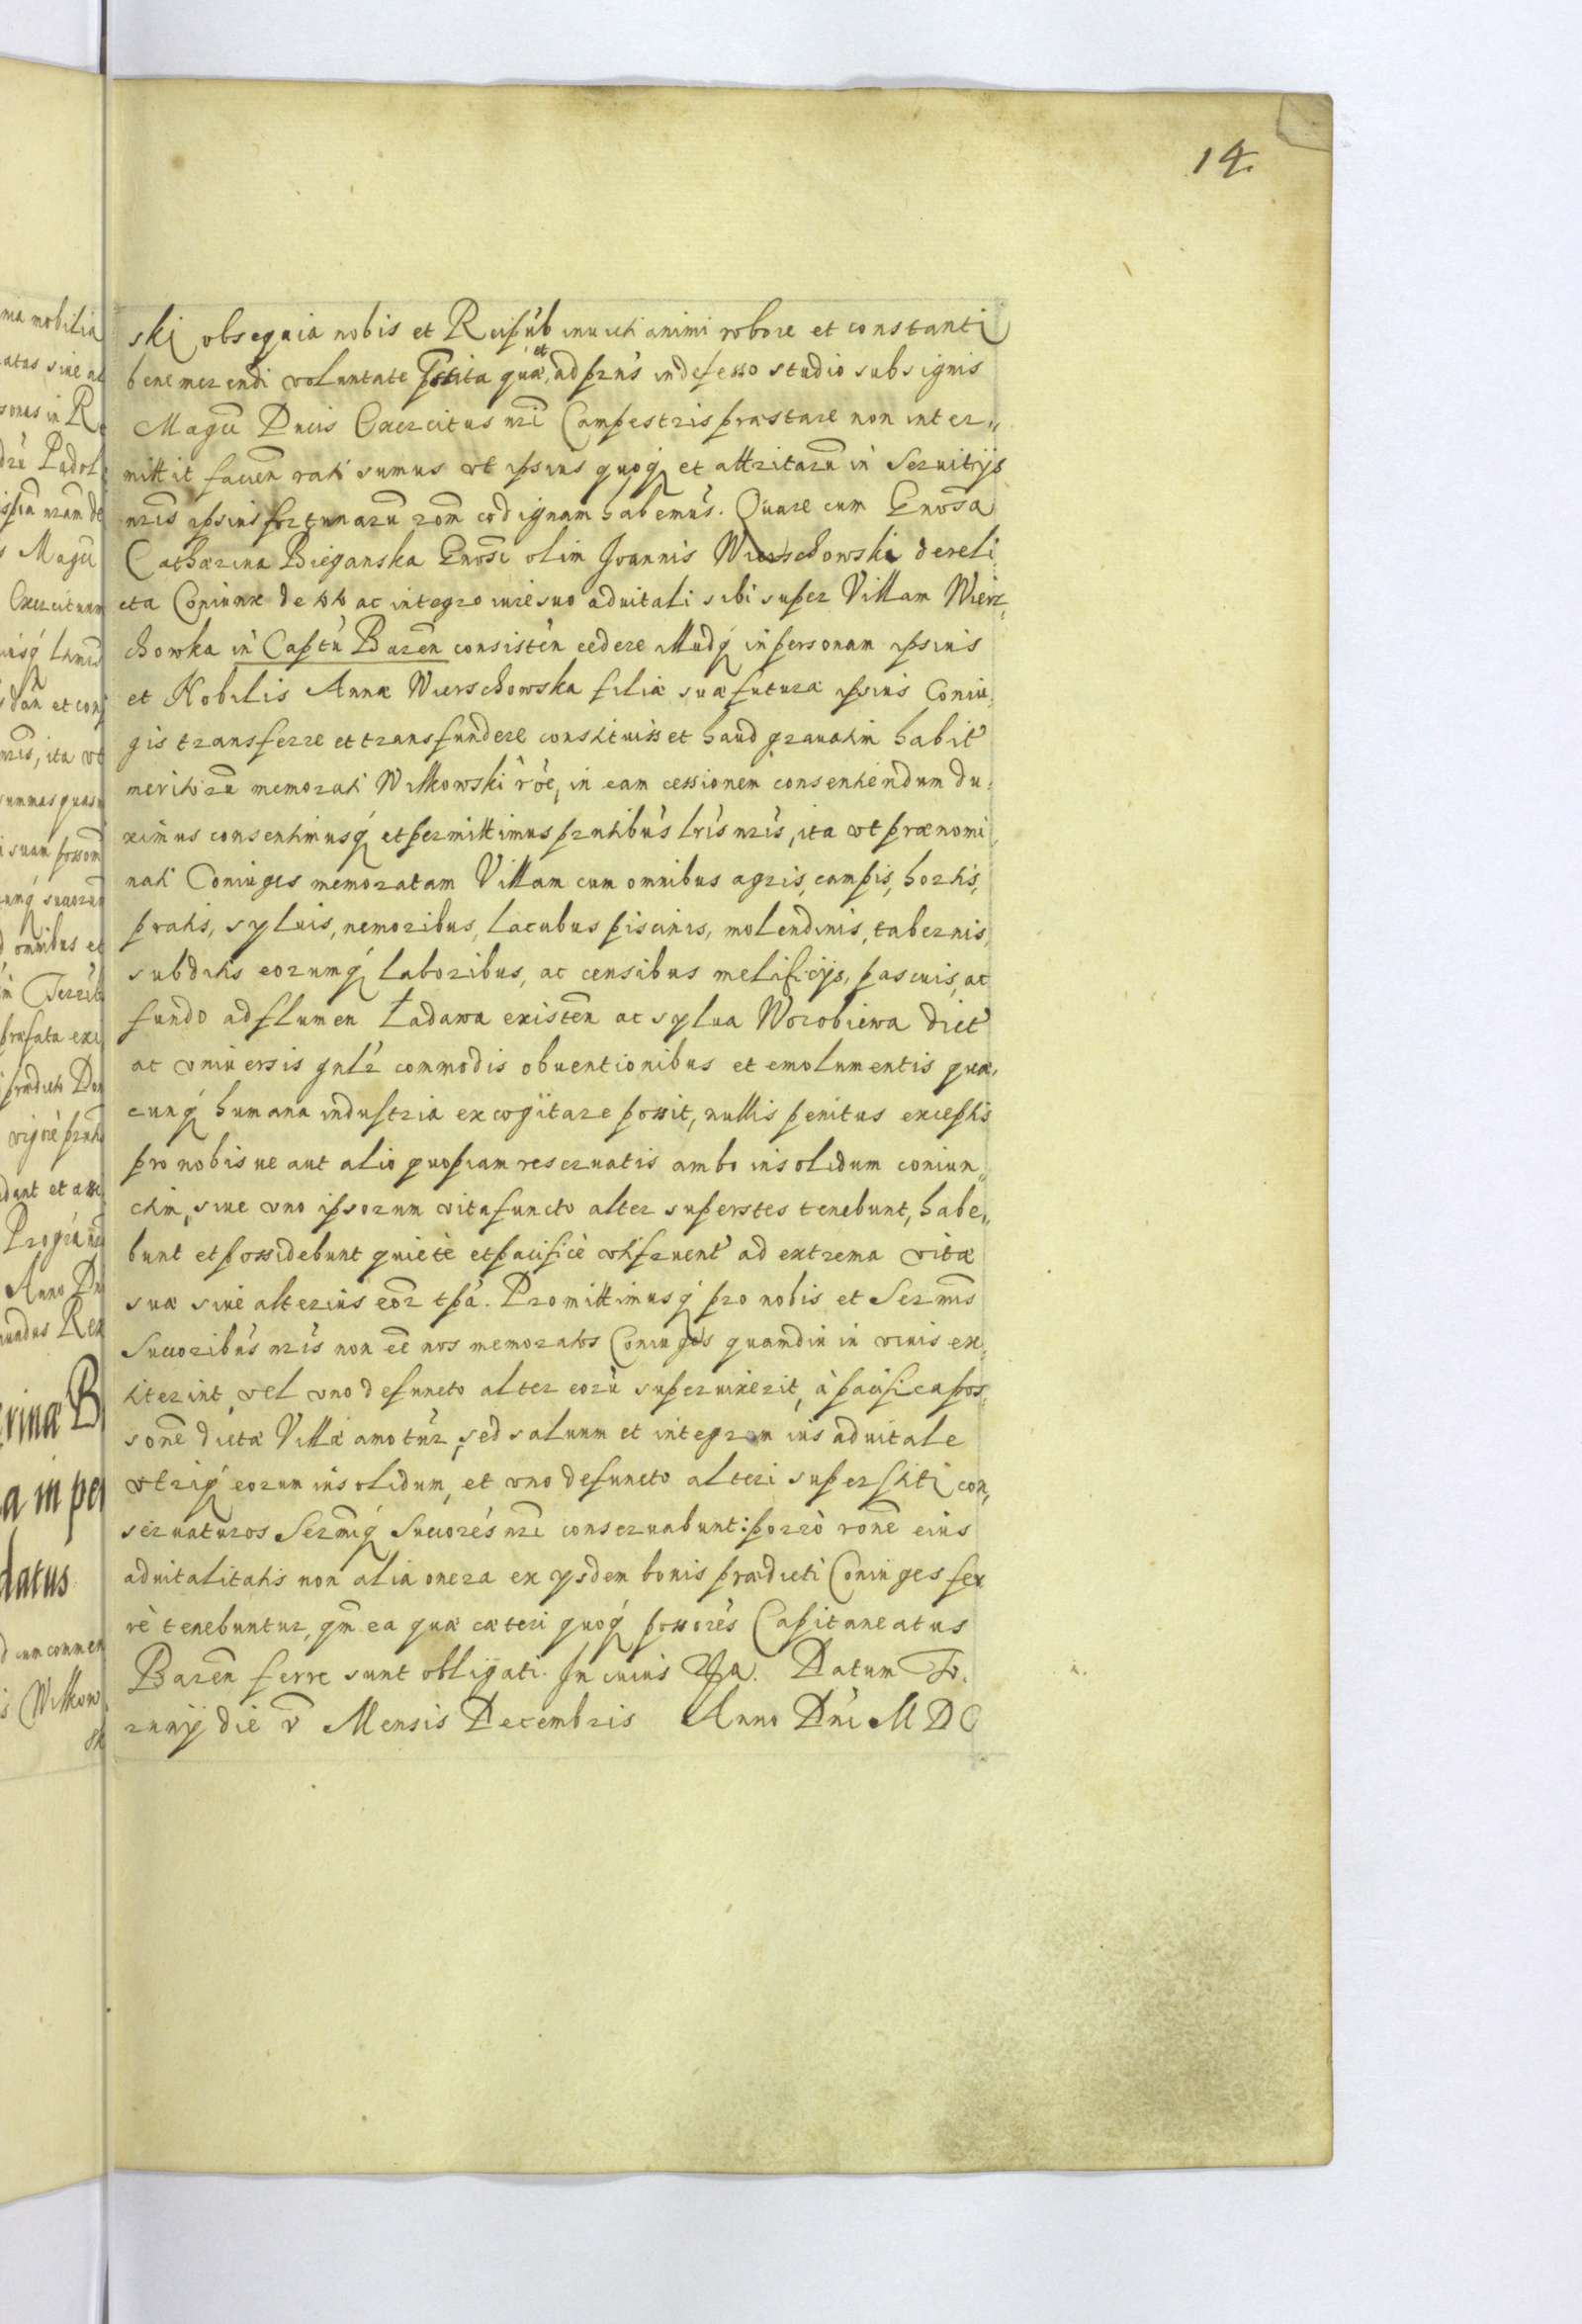 14.
ma mobilia
atas siue al
sonas in R
Padol
Magci
Exercituum
dan et con
nris, ita vt
summas quas
omnibus et
præfata exi
Anno Dn
mundus Rex
erinæ B
a in per
datus
d cum commen
s Witkow
sk
ski obsequia nobis et Reipub inuicti animi robore et constanti
bene merendi voluntate præstita quæ et ad præns indefesso studio sub signis
Magci Ducis Exercitus nri Campestris præstare non inter„
mittit facien rati sumus vt ipsius quoq et attritaru in seruitijs
nris ipsius fortunaru rom codignam habemus. Quare cum Gnosa
Catharina Bieganska Gnosi olim Joannis Wierschowski dereli
cta Coniunx de ac integro iure suo aduitali sibi super Villam Wierz,
chowka in Captu Baren consisten cedere illudq in personam ipsius
et Nobilis Annæ Wierschowska filiæ suæ futuræ ipsius Coniu,
gis transferre et transfundere constituisset haud grauatim habit
meritoru memorati Witkowski roe, in eam cessionem consentiendum du,
ximus consentimusq et permittimus prntibus lris nris, ita vt prænomi,
nati Coniuges memoratam Villam cum omnibus agris, campis, hortis,
pratis, syluis, nemoribus, lacubus piscinis, molendinis, tabernis,
subditis eorumq laboribus, ac censibus melificijs, pascuis, ac
fundo ad flumen Ładawa existen ac sylua Worobiewa dict
ac vniuersis gnlr commodis obuentionibus et emolumentis quæ,
cunq humana industria excogitare possit, nullis penitus exceptis
pro nobis ue aut alio quopiam reseruatis ambo insolidum coniun„
ctim, siue vno ipsorum vita functo alter superstes tenebunt, habe„
bunt et possidebunt quietè et pacificè vtifruent ad extrema vitæ
suæ siue alterius eor tpa. Promittimusq pro nobis et Sermis
Succoribus nris non ee nos memoratos Coniuges quamdiu in viuis ex,
titerint, vel vno defuncto alter eoru superuixerit, à pacifica pos,
sone dictæ Villæ amotur, sed saluum et integrum ius aduitale
vtriq eorum insolidum, et vno defuncto alteri superstiti con,
seruaturos Sermiq Succores nri conseruabunt: porrò rone eius
aduitalitatis non alia onera ex ysdem bonis prædicti Coniuges fer
re tenebuntur, qm ea quæ cæteri quoq possores Capitaneatus
Baren ferre sunt obligati. In cuius rei. Datum To,
runij die v Mensis Decembris Anno Dni MDC